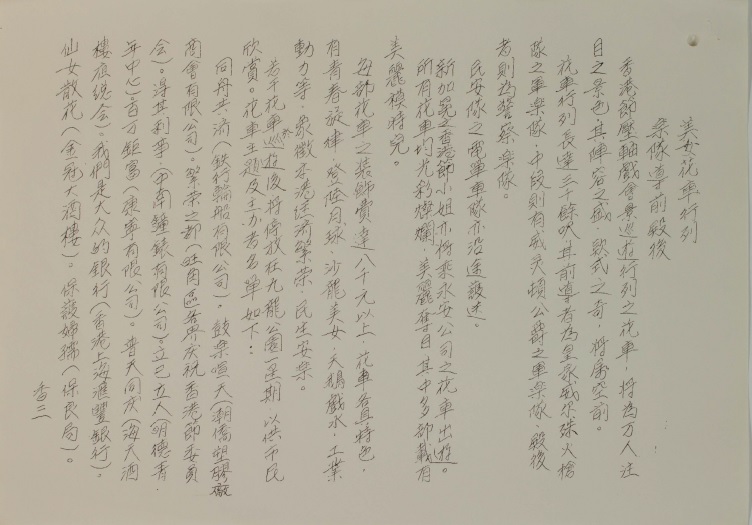 美女花車行列
樂隊導前殿後
香港節壓軸戲會景巡遊行列之花車，將為萬人注
目之景色，其陣容之盛，款式之奇，將屬空前。
花車行列長達三千餘呎，其前導者為皇家威尔殊火槍
隊之軍樂隊，中段則有威靈頓公爵之軍樂隊，殿後
者則為警察樂隊。
民安隊之電單車隊亦沿途護送。
新加冕之香港節小姐亦將乘永安公司之花車出遊。
所有花車均光彩燦爛，美麗奪目，其中多部載有
美麗模特兒。
每部花車之裝飾費達八千元以上，花車各具特色，
有青春旋律，登陸月球，沙龍美女，天鵝戲水，工業
動力等，象徵本港經濟繁榮，民生安樂。
若干花車巡遊後將停放在九龍公園一星期，以供市民
欣賞。花車主題及主办者名單如下：
同舟共濟（鉄行輪船有限公司），鼓樂喧天（潮僑塑膠廠
商會有限公司）。繁榮之都（旺角區各界庆祝香港節委員
会）。得其利夢（中南鐘錶有限公司）。立己立人（明德青
年中心）。百万鉅富（東寧有限公司）。普天同庆（海天酒
樓夜總会）。我們是大众的銀行（香港上海滙豐銀行），
仙女散花（金冠大酒樓）。保護婦孺（保良局）。
香三